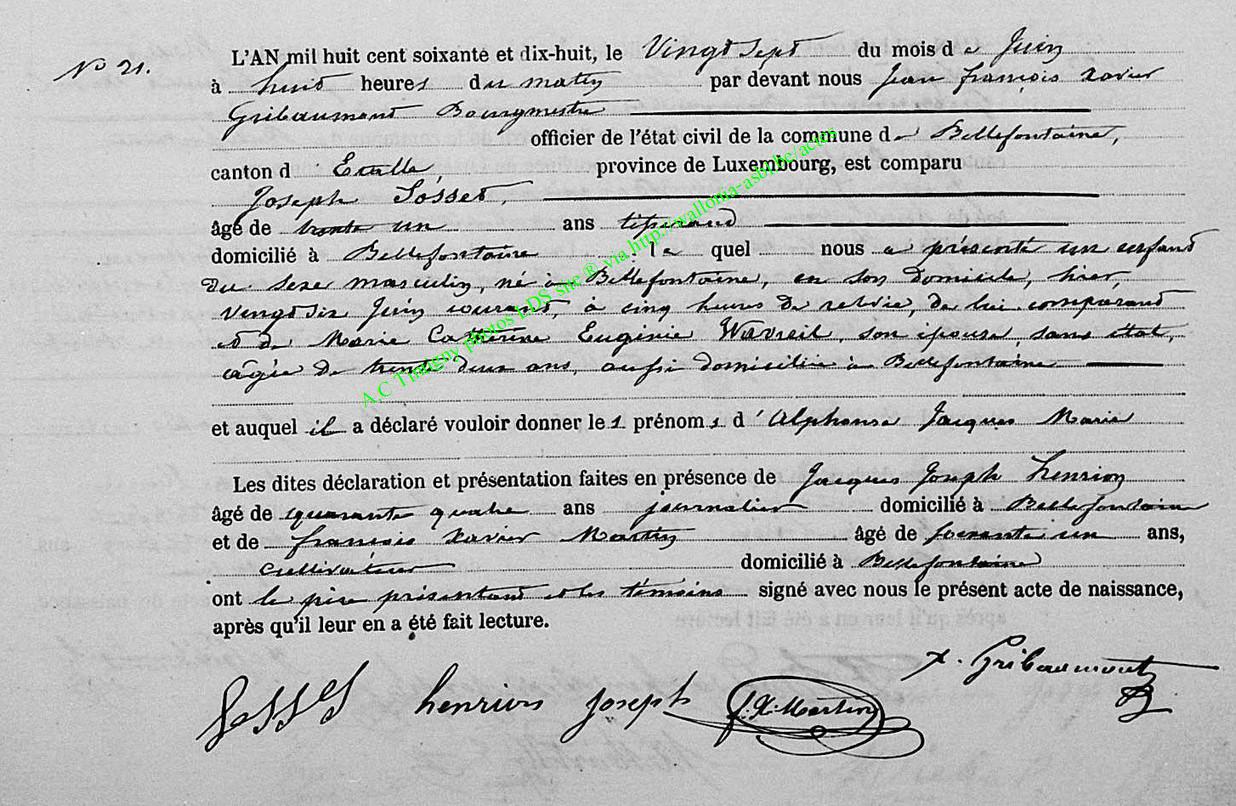 N° 21.
L'AN mil huit cent soixante et dix-huit, le Vingt Sept du mois de Juin
à huit heures du matin par devant nous Jean françois Xavier
Gribaumont Bourgmestre
officier de l'état civil de la commune de Bellefontaine,
canton d'Etalle, province de Luxembourg, est comparu
Joseph Sosset,
âgé de trente un ans tisserand
domicilié à Bellefontaine lequel nous a présenté un enfant
du sexe masculin, né à Bellefontaine, en son domicile, hier,
vingt six Juin courant, à cinq heures de relevée, de lui comparant
et de Marie Catherine Eugénie Wavreil, son épouse, sans état,
âgée de trente deux ans, aussi domiciliée à Bellefontaine
et auquel il a déclaré vouloir donner les prénoms d'Alphonse Jacques Marie
Les dites déclaration et présentation faites en présence de Jacques Joseph henrion
âgé de quarante quatre ans journalier domicilié à Bellefontaine
et de françois Xavier Martin âgé de soixante un ans,
cultivateur domicilié à Bellefontaine
ont le père présentant et les témoins signé avec nous le présent acte de naissance,
après qu'il leur en a été fait lecture.
X. Gribaumont
henrion Joseph f. X. Martin
A.C Tintigny photos LDS site ® via http://wallonia-asbl.be/actes